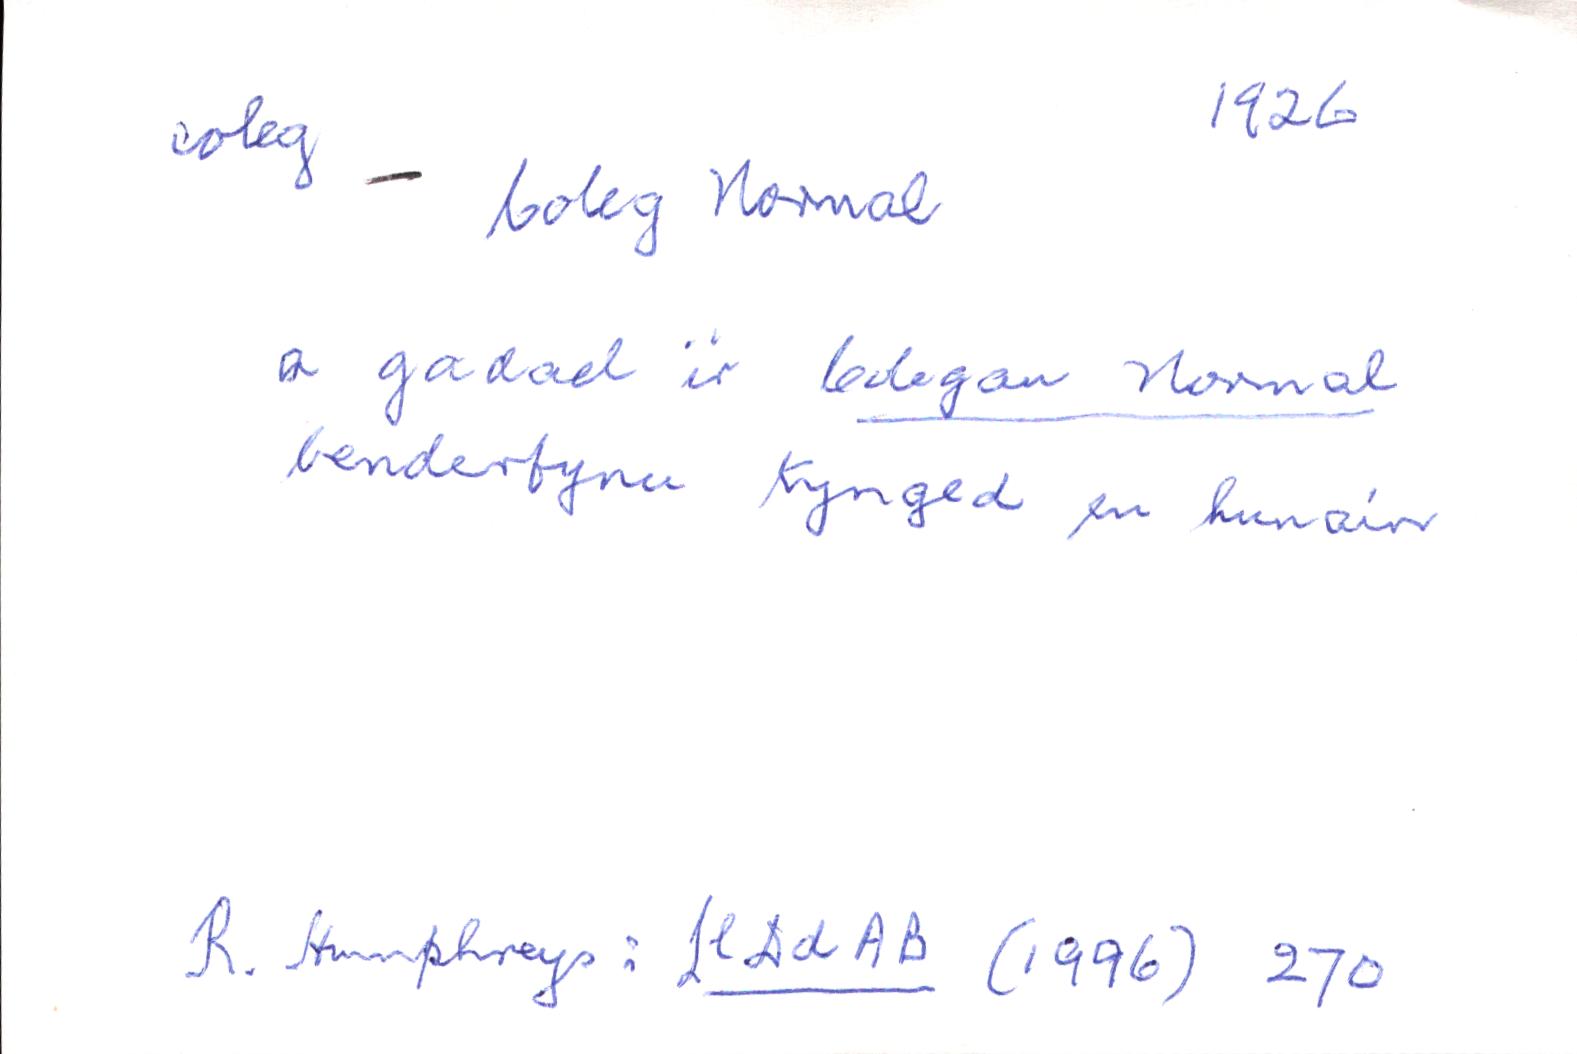 coleg 1926
– Coleg Normal
a gadael i'r Colegau Normal
benderfynu tynged eu hunain
R. Humphreys: Ll Dd AB (1996) 270